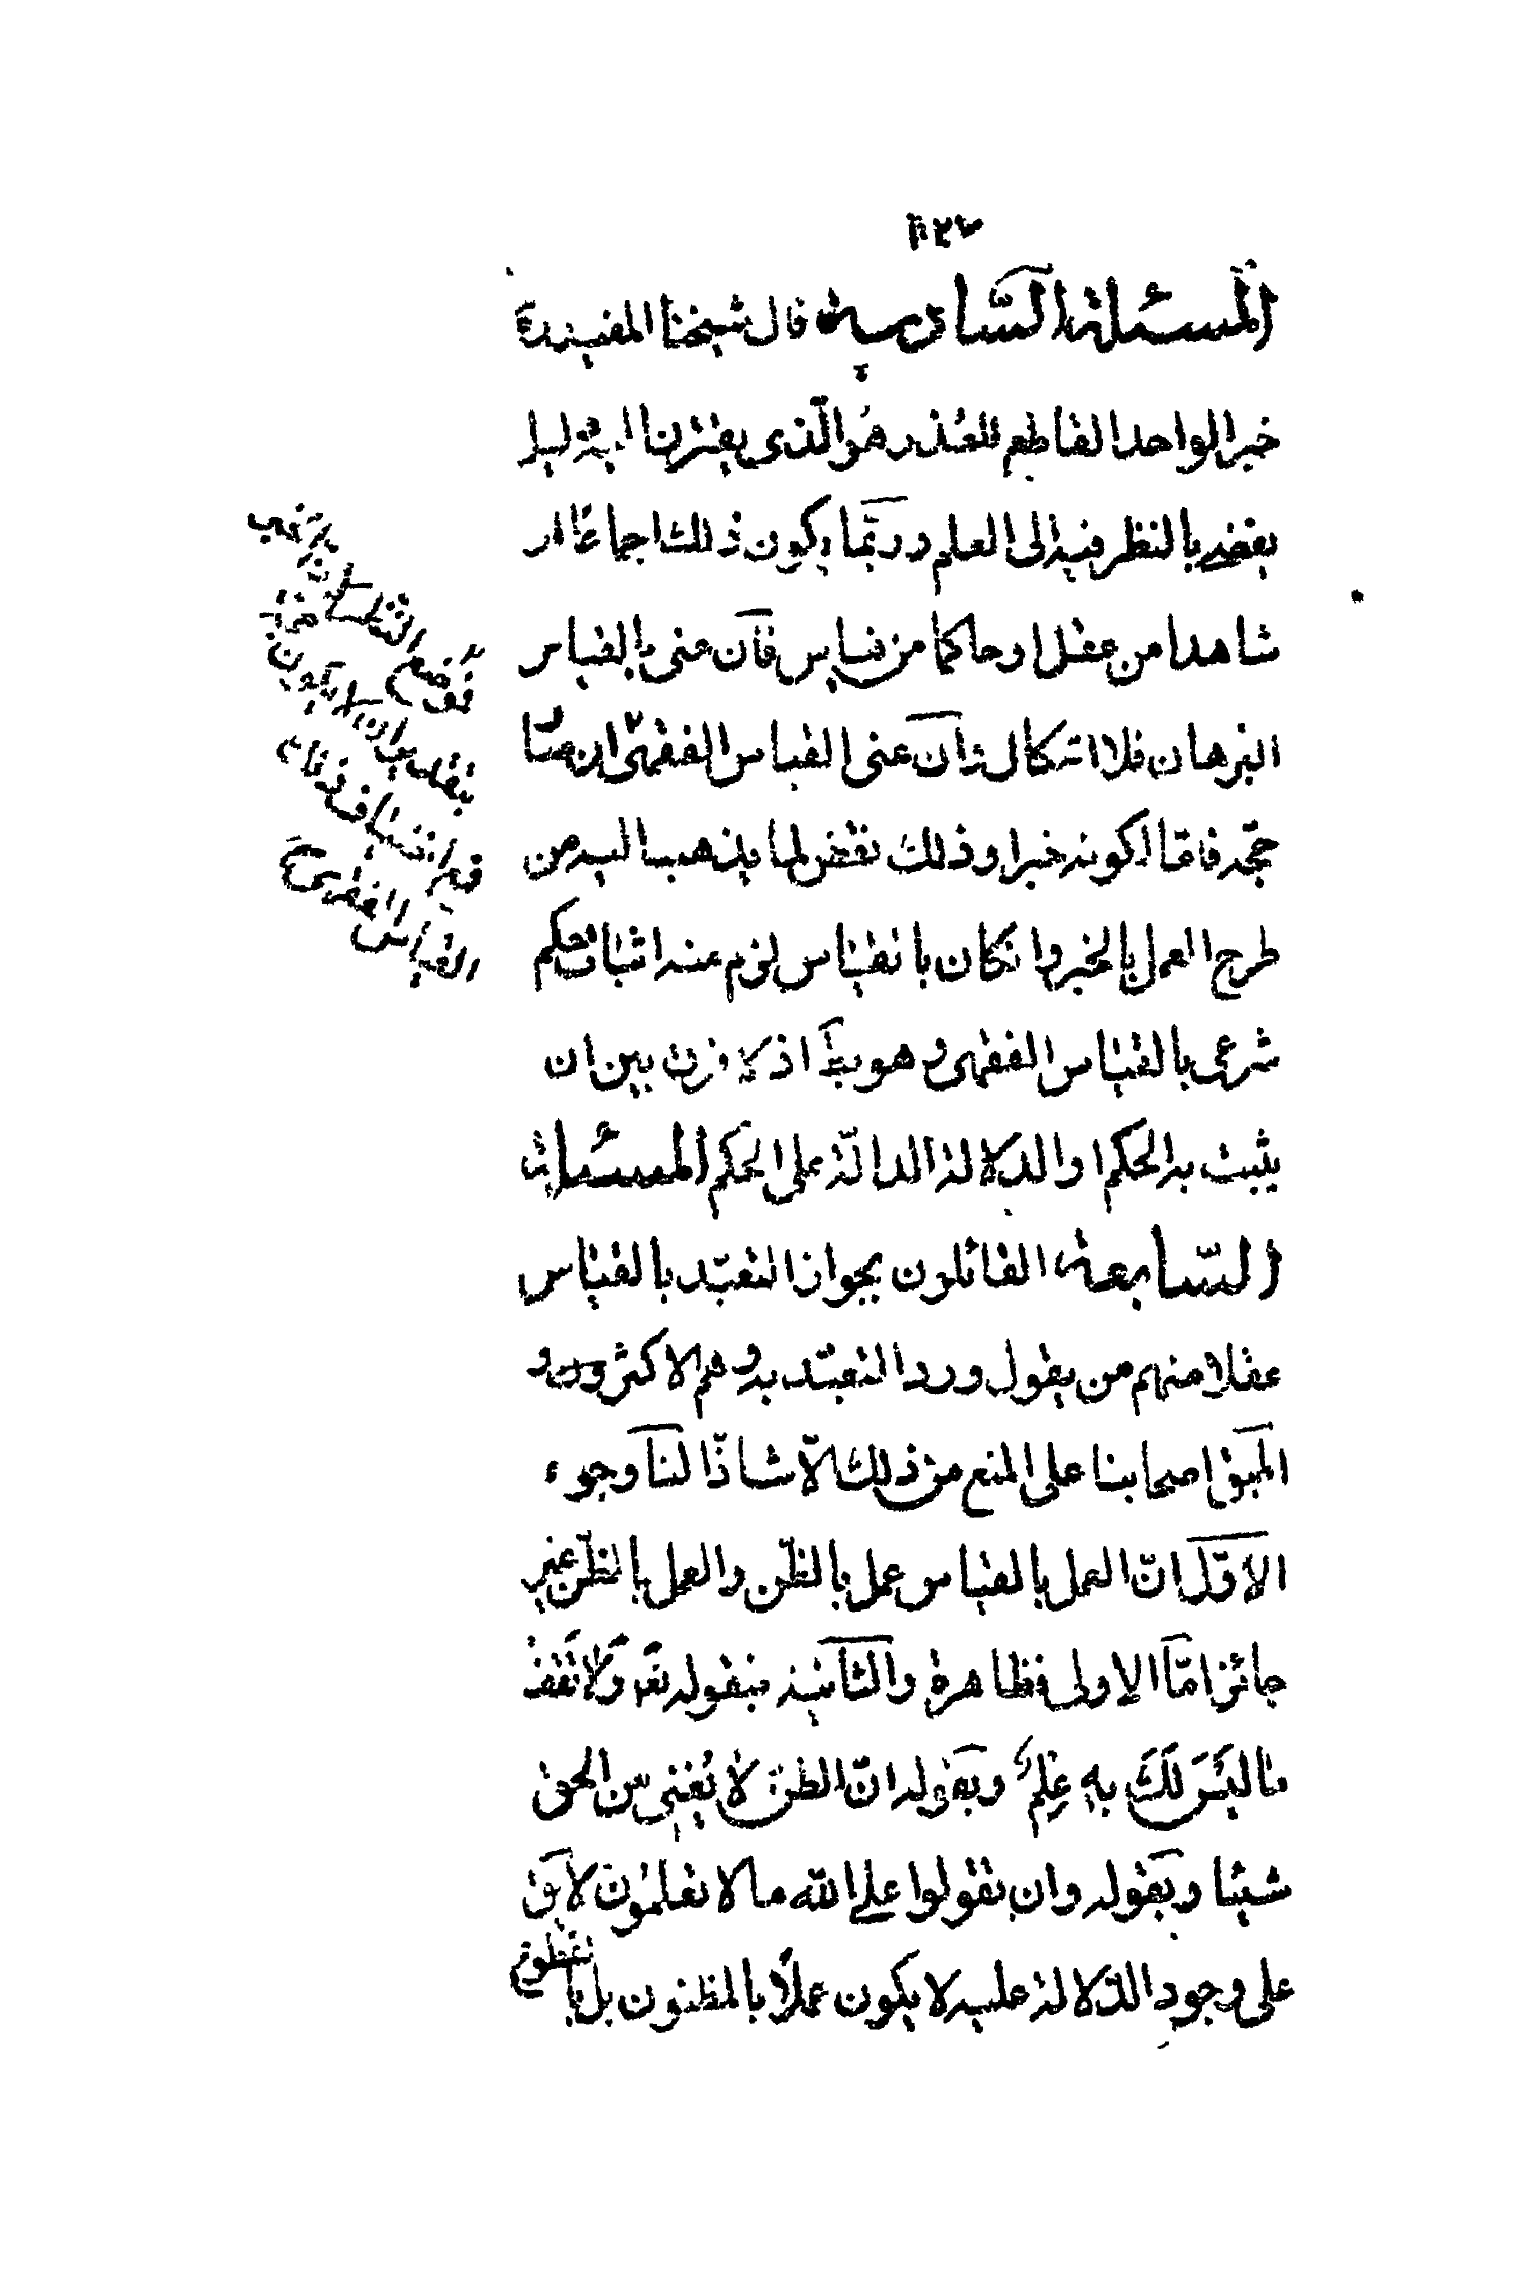 ١٢٧
المسئلة السادسة قال شيخنا المفيد ره
خبر الواحد القاطع للعذر هو الذى يقترن اليه دليل
يفضى بالنظر فيه الى العلم وربّما يكون ذلك اجماعًا او
شاهدا من عقل او حاكما من قياس فان عنى بالقياس
البرهان فلا اشكال وان عنى القياس الفقهىّ
حجّه فامّا لكونه خبرا وذلك نقض لما يذهب اليه من
طرح العمل بالخبر وان كان بالقياس لزم منه اثبات حكم
شرعى بالقياس الفقهى وهو بط اذ لا فرق بين ان
يثبت به الحكم او الدلالة الدالّة على الحكم المسئلة
السّابعة القائلون بجواز التعبّد بالقياس
عقلا منهم من يقول ورد التعبّد به وهم الاكثرون و
اطبق اصحابنا على المنع من ذلك الّا شاذّا لنا وجوه
الاوّل انّ العمل بالقياس عمل بالظّن والعمل بالظّن غير
جائز امّا الاولى فظاهرة والثانية فبقوله تعه وَلا تَقْفُ
ما لَيْسَ لَكَ بِهِ عِلْمٌ وبقوله انّ الظن لا يُغنى من الحق
شيئا وبقوله وان تقولوا على الله ما لا تعلمون لا يق
على وجود الدّلالة عليه لا يكون عملًا بالمظنون بل بالمقطوع
القياس الفقهى